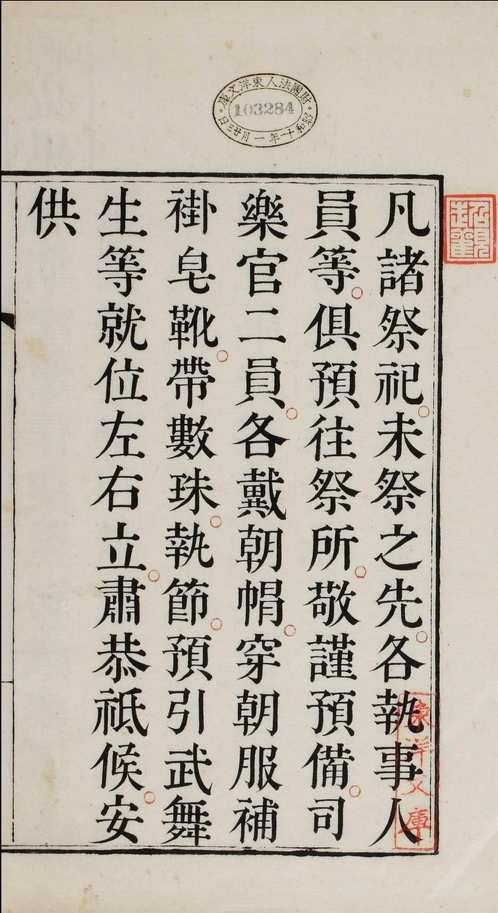 凡諸祭祀未祭之先各執事人
員等俱預往祭所敬謹預備司
樂官二員各戴朝帽穿朝服補
褂皂靴帶數珠執節預引武舞
生等就位左右立肅恭祗候安
供
財團法人東洋文庫
103284
東洋文庫